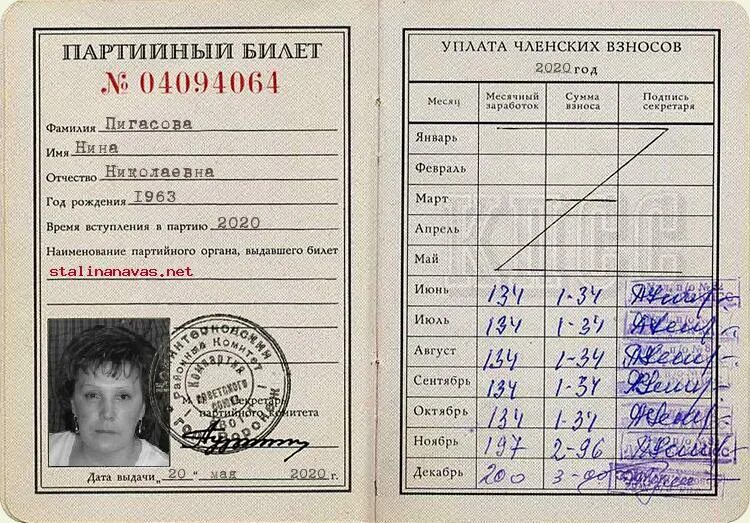 ПАРТИЙНЫЙ БИЛЕТ
№ 04094064
Фамилия Пигасова
Имя Нина
Отчество Николаевна
Год рождения 1963
Время вступления в партию 2020
Наименование партийного органа, выдавшего билет
stalinanavas.net
Коминтерновский
Районный Комитет
Компартия
Советского
Союза
М. Секретарь
партийного комитета
Дата выдачи „20" мая 2020 г.
УПЛАТА ЧЛЕНСКИХ ВЗНОСОВ
2020 год
Месяц Месячный заработок Сумма взноса Подпись секретаря
КПСС
Январь
Февраль
Март
Апрель
Май
Июнь 134 1-34
Июль 134 1-34
Август 134 1-34
Сентябрь 134 1-34
Октябрь 134 1-34
Ноябрь 197 2-96
Декабрь 200 3-00